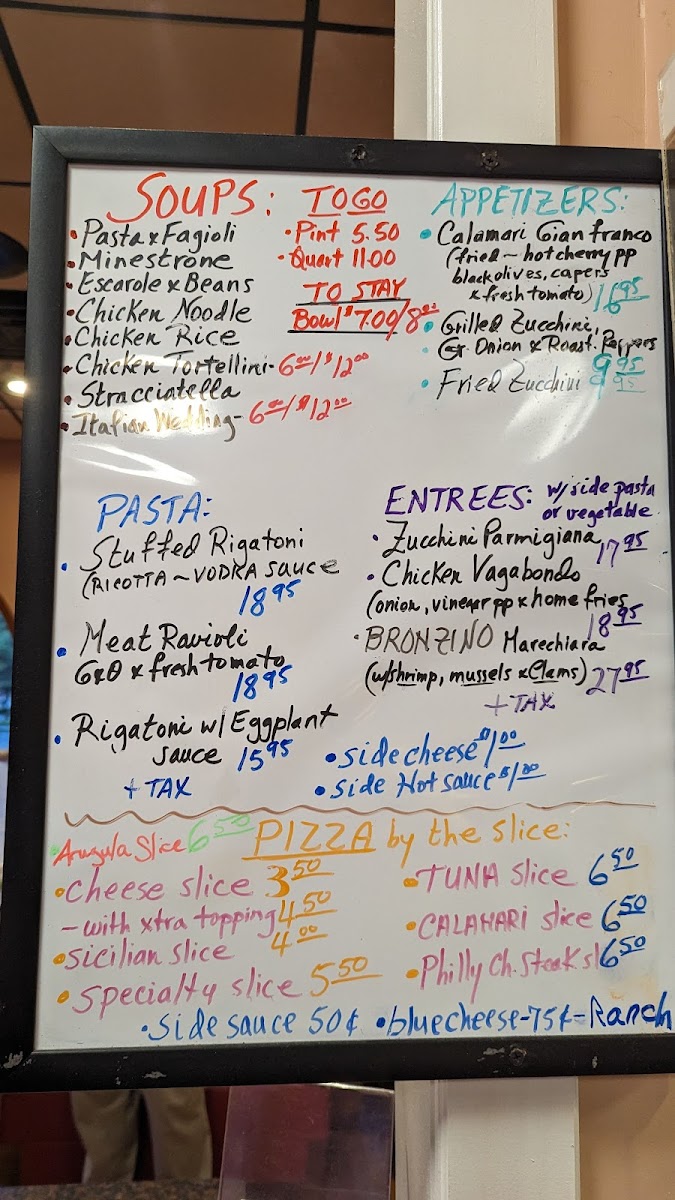 SOUPS:
• Pasta x Fagioli
• Minestrone
• Escarole x Beans
• Chicken Noodle
• Chicken Rice
• Chicken Tortellini - 6.00/$12.00
• Stracciatella
• Italian Wedding - 6.00/$12.00
TO GO
• Pint 5.50
• Quart 11.00
TO STAY
Bowl $7.00/8.00
APPETIZERS:
• Calamari Gianfranco
(fried ~ hot cherry pp
black olives, capers
x fresh tomato) 16.95
• Grilled Zucchini,
Gr. Onion x Roast. Peppers
9.95
• Fried Zucchini 9.95
PASTA:
• Stuffed Rigatoni
(RICOTTA ~ VODKA sauce
18.95
• Meat Ravioli
GxO x fresh tomato
18.95
• Rigatoni w/ Eggplant
sauce 15.95
+ TAX
ENTREES: w/ side pasta
or vegetable
• Zucchini Parmigiana
17.95
• Chicken Vagabondo
(onion, vinegar pp x home fries
18.95
• BRONZINO Marechiara
(w/ shrimp, mussels x Clams) 27.95
+ TAX
• side cheese $1.00
• side Hot sauce $1.00
PIZZA by the slice:
• Arugula Slice 6.50
• cheese slice 3.50
- with xtra topping 4.50
• sicilian slice 4.00
• specialty slice 5.50
• TUNA slice 6.50
• CALAMARI slice 6.50
• Philly Ch. Steak sl 6.50
• side sauce 50¢ • blue cheese - 75¢ - Ranch